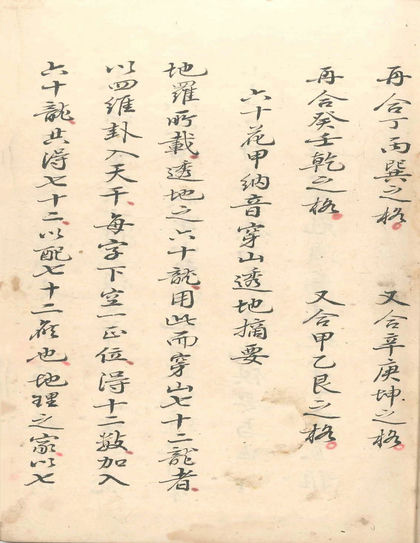 再合丁丙巽之格 又合辛庚坤之格
再合癸壬乾之格 又合甲乙艮之格
六十花甲納音穿山透地摘要
地羅所載透地之六十龍用此而穿山七十二龍者
以四維卦入天干每字下空一正位得十二数加入
六十龍共得七十二以配七十二候也地理之家以七